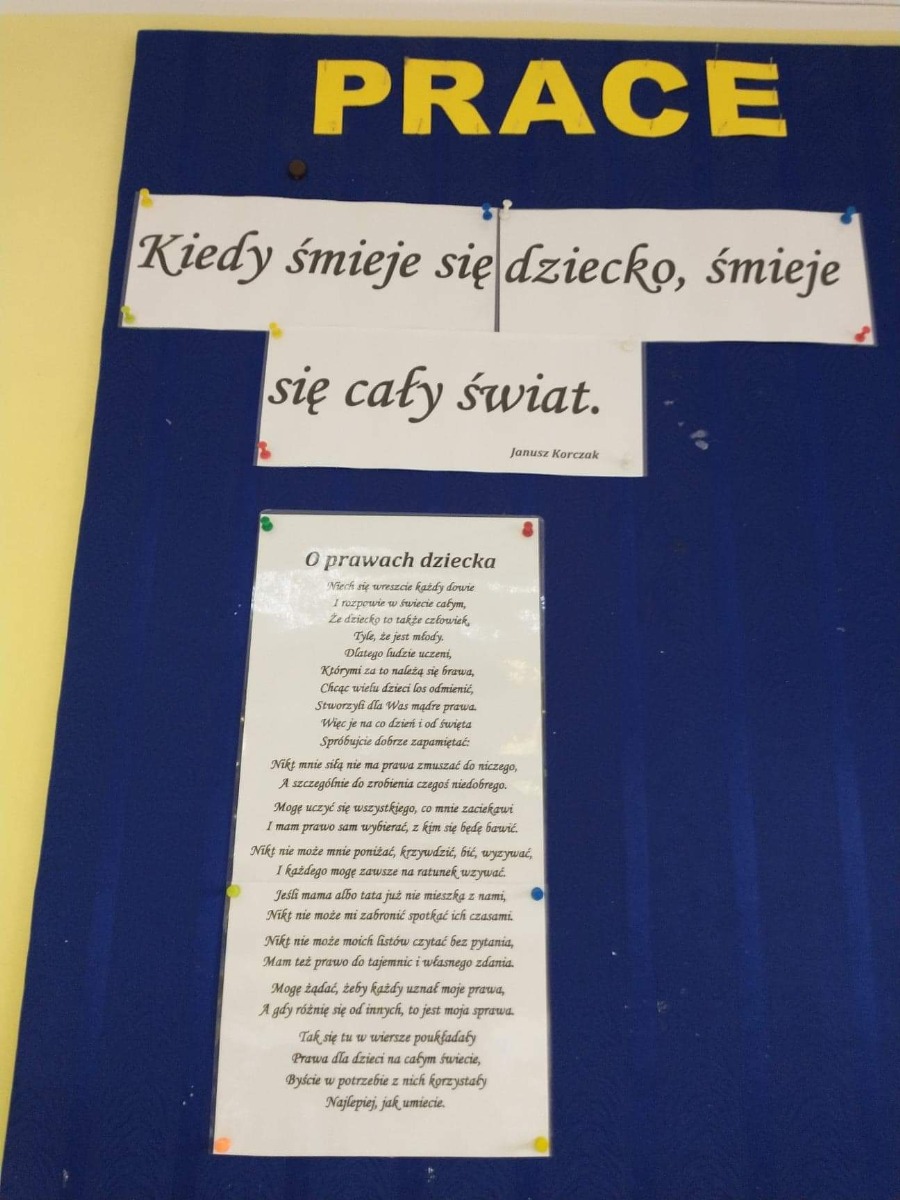 PRACE
Kiedy śmieje się dziecko, śmieje
się cały świat.
Janusz Korczak
O prawach dziecka
Niech się wreszcie każdy dowie
I rozpowie w świecie całym,
Że dziecko to także człowiek,
Tyle, że jest młody.
Dlatego ludzie uczeni,
Którymi za to należą się brawa,
Chcąc wielu dzieci los odmienić,
Stworzyli dla Was mądre prawa.
Więc je na co dzień i od święta
Spróbujcie dobrze zapamiętać:
Nikt mnie siłą nie ma prawa zmuszać do niczego,
A szczególnie do zrobienia czegoś niedobrego.
Mogę uczyć się wszystkiego, co mnie zaciekawi
I mam prawo sam wybierać, z kim się będę bawić.
Nikt nie może mnie poniżać, krzywdzić, bić, wyzywać,
I każdego mogę zawsze na ratunek wzywać.
Jeśli mama albo tata już nie mieszka z nami,
Nikt nie może mi zabronić spotkać ich czasami.
Nikt nie może moich listów czytać bez pytania,
Mam też prawo do tajemnic i własnego zdania.
Mogę żądać, żeby każdy uznał moje prawa,
A gdy różnię się od innych, to jest moja sprawa.
Tak się tu w wiersze poukładały
Prawa dla dzieci na całym świecie,
Byście w potrzebie z nich korzystały
Najlepiej, jak umiecie.